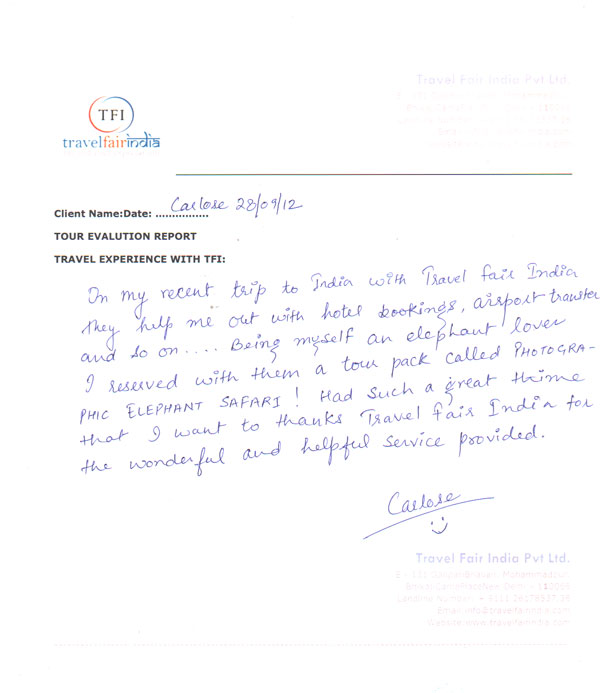 Travel Fair India Pvt Ltd.
TFI
travelfairindia
Client Name:Date: ................ Caelose 28/09/12
TOUR EVALUTION REPORT
TRAVEL EXPERIENCE WITH TFI:
On my recent trip to India with Travel fair India
they help me out with hotel bookings, airport transfer
and so on.... Being myself an elephant lover
I reserved with them a tour pack called PHOTOGRA-
PHIC ELEPHANT SAFARI! Had such a great thime
that I want to thanks Travel fair India for
the wonderful and helpful service provided.
Caelose
Travel Fair India Pvt Ltd.
Email: info@travelfairindia.com
Website: www.travelfairindia.com